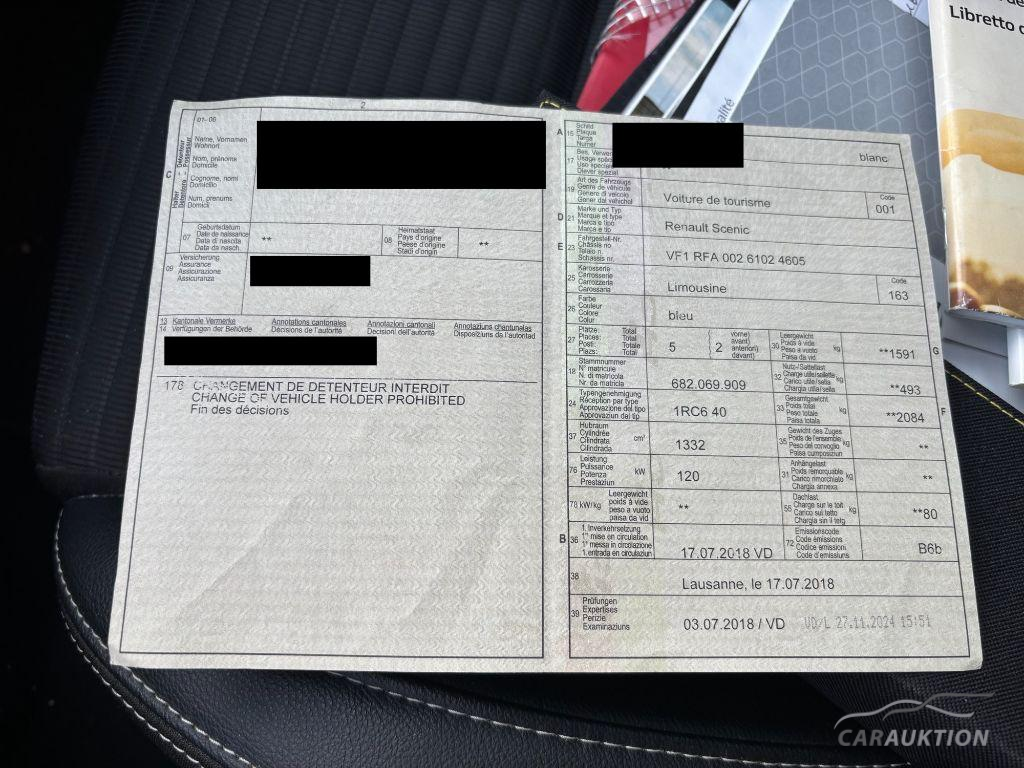 2
01-06
Name, Vornamen
Wohnort
Nom, prénoms
Domicile
Cognome, nomi
Domicilio
Num, prenums
Domicil
C
07
Geburtsdatum
Date de naissance
Data di nascita
Data da nasch.
**
08
Heimatstaat
Pays d'origine
Paese d'origine
Stadi d'origin
**
09
Versicherung
Assurance
Assicurazione
Assicuranza
13 Kantonale Vermerke
14 Verfügungen der Behörde
Annotations cantonales
Décisions de l'autorité
Annotazioni cantonali
Decisioni dell'autorità
Annotaziuns chantunalas
Disposiziuns da l'autoritad
178 CHANGEMENT DE DETENTEUR INTERDIT
CHANGE OF VEHICLE HOLDER PROHIBITED
Fin des décisions
A 15
Schild
Plaque
Targa
Numer
blanc
17
Bes. Verwen
Usage spéci
Uso speciale
Diever spezial
19
Art des Fahrzeugs
Genre de véhicule
Genere di veicolo
Gener dal vehichel
Voiture de tourisme
Code
001
D 21
Marke und Typ
Marque et type
Marca e tipo
Marca e tip
Renault Scenic
E 23
Fahrgestell-Nr.
Châssis no
Telaio n.
Schassis nr.
VF1 RFA 002 6102 4605
25
Karosserie
Carrosserie
Carrozzeria
Carossaria
Limousine
Code
163
26
Farbe
Couleur
Colore
Colur
bleu
27
Plätze: Total
Places: Total
Posti: Totale
Plazs: Total
5
2
vorne)
avant)
anteriori)
davant)
30
Leergewicht
Poids à vide
Peso a vuoto
Paisa da vid
kg
**1591
G
18
Stammnummer
N° matricule
N. di matricola
Nr. da matricla
682.069.909
32
Nutz-/Sattellast
Charge utile/sellette
Carico utile/sella
Chargia utila/sella
kg
**493
24
Typengenehmigung
Réception par type
Approvazione del tipo
Approvaziun dal tip
1RC6 40
33
Gesamtgewicht
Poids total
Peso totale
Paisa totala
kg
**2084
F
37
Hubraum
Cylindrée
Cilindrata
Cilindrada
cm³
1332
35
Gewicht des Zuges
Poids de l'ensemble
Peso del convoglio
Paisa cumposiziun
kg
**
76
Leistung
Puissance
Potenza
Prestaziun
kW
120
31
Anhängelast
Poids remorquable
Carico rimorchiato
Chargia annexa
kg
**
78 kW/kg
Leergewicht
poids à vide
peso a vuoto
paisa da vid
**
55
Dachlast
Charge sur le toit
Carico sul tetto
Chargia sin il tetg
kg
**80
B 36
1. Inverkehrsetzung
1re mise en circulation
1a messa in circolazione
1. entrada en circulaziun
17.07.2018 VD
72
Emissionscode
Code émissions
Codice emissioni
Code d'emissiuns
B6b
38
Lausanne, le 17.07.2018
39
Prüfungen
Expertises
Perizie
Examinaziuns
03.07.2018 / VD
VD/L 27.11.2024 15:51
Libretto d
alité
CARAUKTION